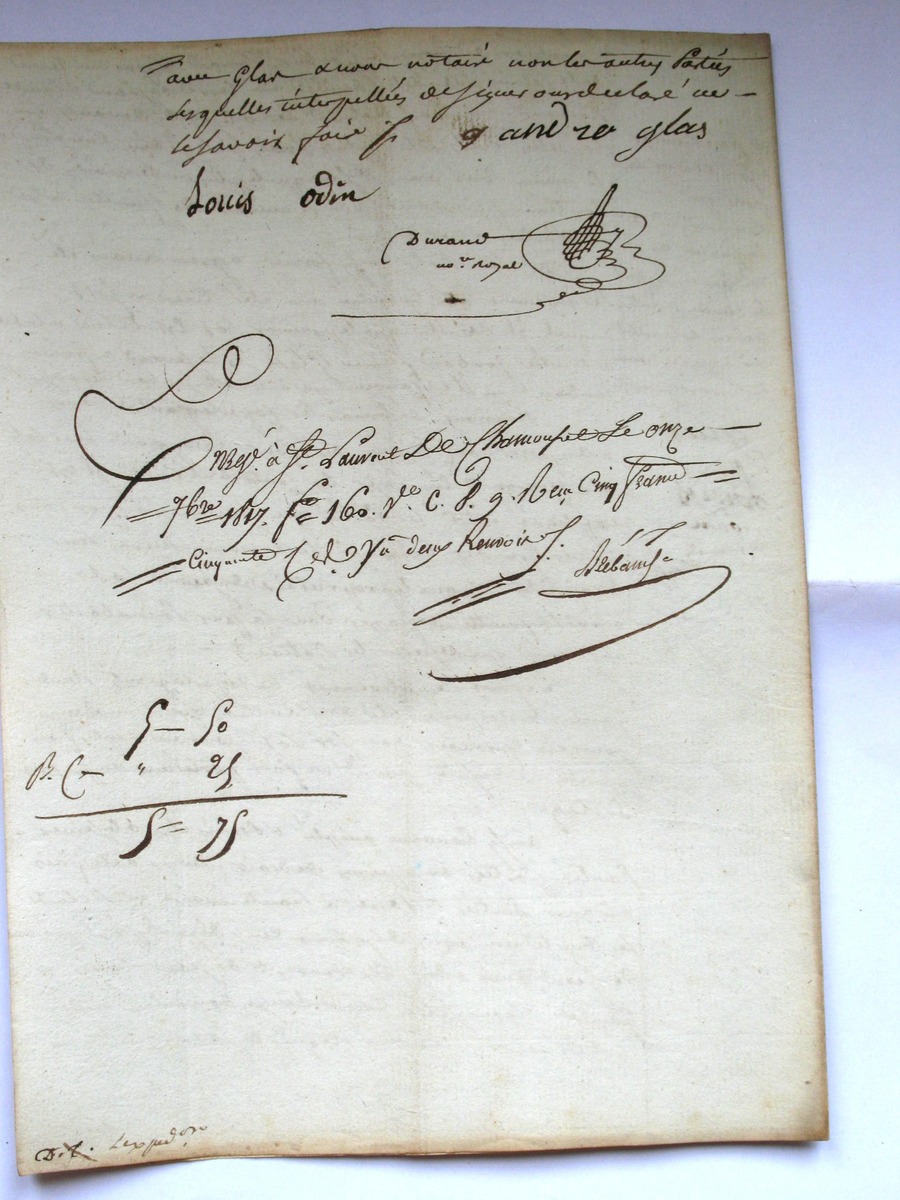 avec Glas & nous notaire non les autres Parties
lesquelles interpellées de Signer ont declaré ne
le savoir faire
andre glas
Louis odin
Durand
no.re royal
Enregé. à St. Laurent De Chamousset Le onze
9bre 1817. fo 160. Vo. C. 8. 9. Reçu Cinq francs
Cinquante C. et y a deux Renvois.
5 – 50
" 25
5 = 75
D. f. L'expedon